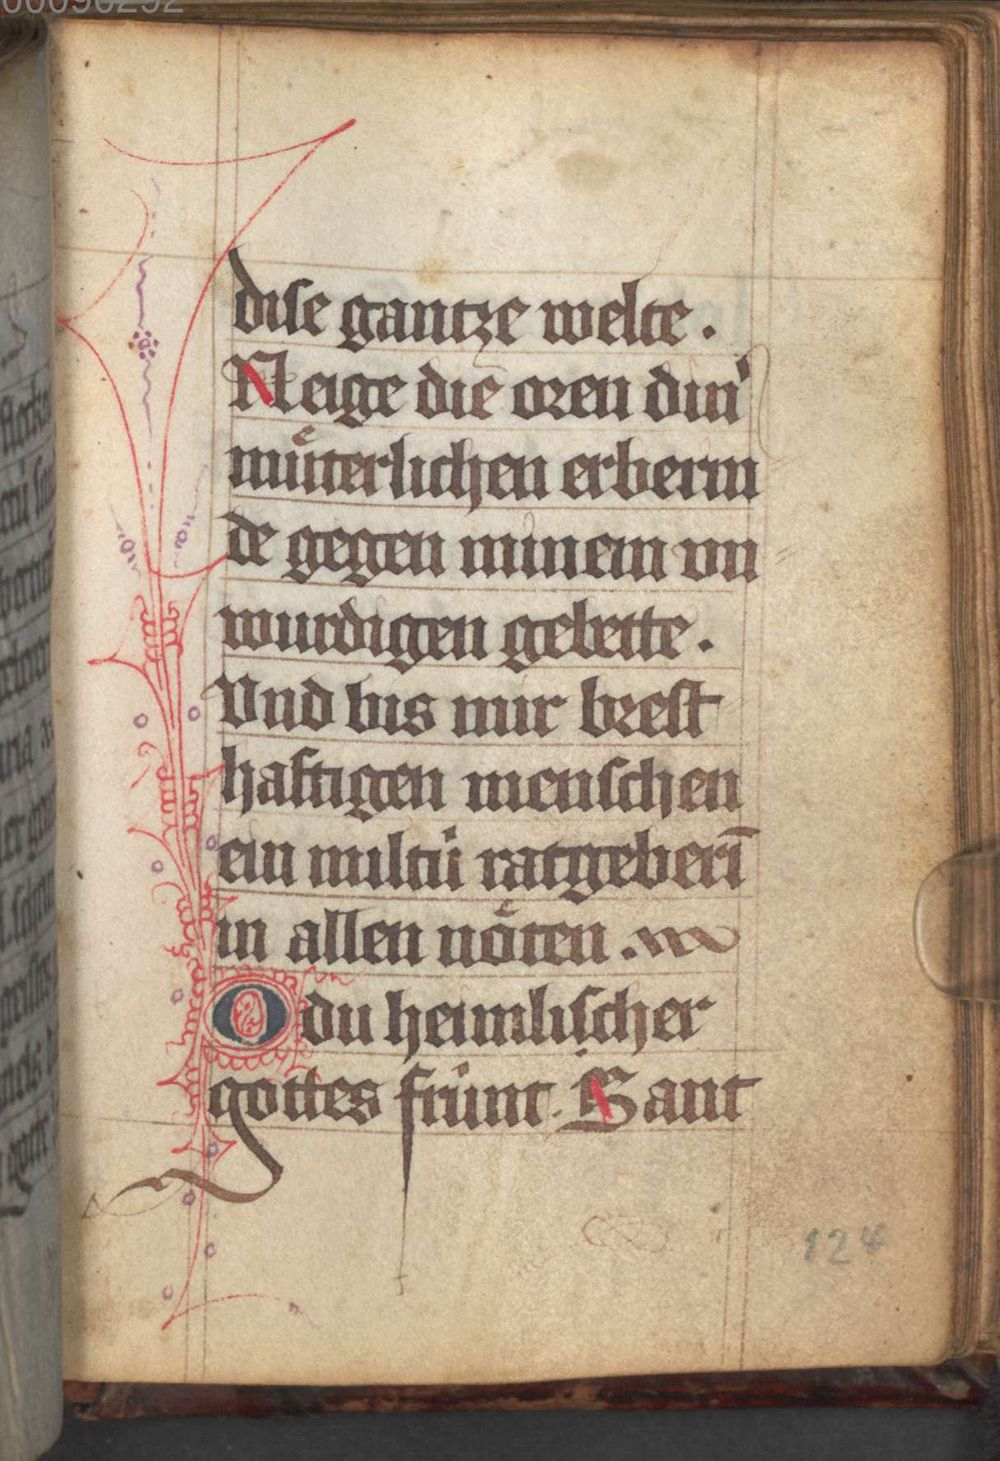 dise gantze welte.
Neige die oren din'
muͤterlichen erberm
de gegen minem vn
wurdigen gebette.
Vnd bis mir brest
haftigen menschen
ein miltü ratgeberī
in allen noͤten.
O du heimlischer
gottes frünt. Sant
124